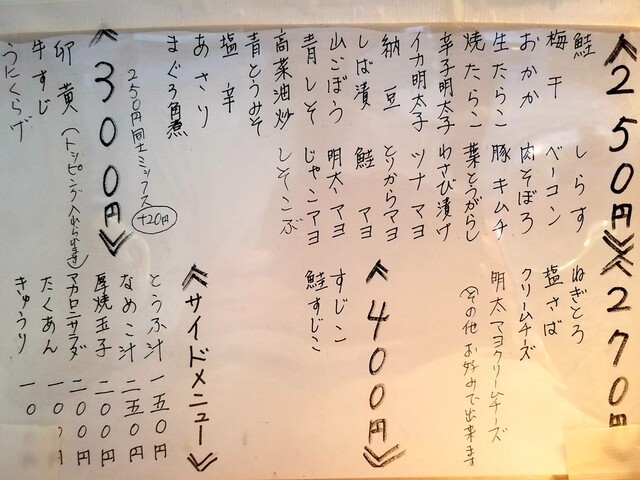 《250円》
鮭
梅干
おかか
生たらこ
焼たらこ
辛子明太子
イカ明太子
納豆
しば漬
山ごぼう
青しそ
高菜油炒
青とうみそ
塩辛
あさり
まぐろ角煮
しらす
ベーコン
肉そぼろ
豚キムチ
葉とうがらし
わさび漬け
ツナマヨ
とりからマヨ
鮭マヨ
明太マヨ
じゃこマヨ
しそこぶ
250円同士ミックス +20円
《300円》
卵黄(トッピング入れられます)
牛すじ
うにくらげ
《270円
ねぎとろ
塩さば
クリームチーズ
明太マヨクリームチーズ
その他お好みで出来ます
《400円》
すじこ
鮭すじこ
《サイドメニュー》
とうふ汁 一五〇円
なめこ汁 二五〇円
厚焼玉子 二〇〇円
マカロニサラダ 二〇〇円
たくあん 一〇
きゅうり 一〇